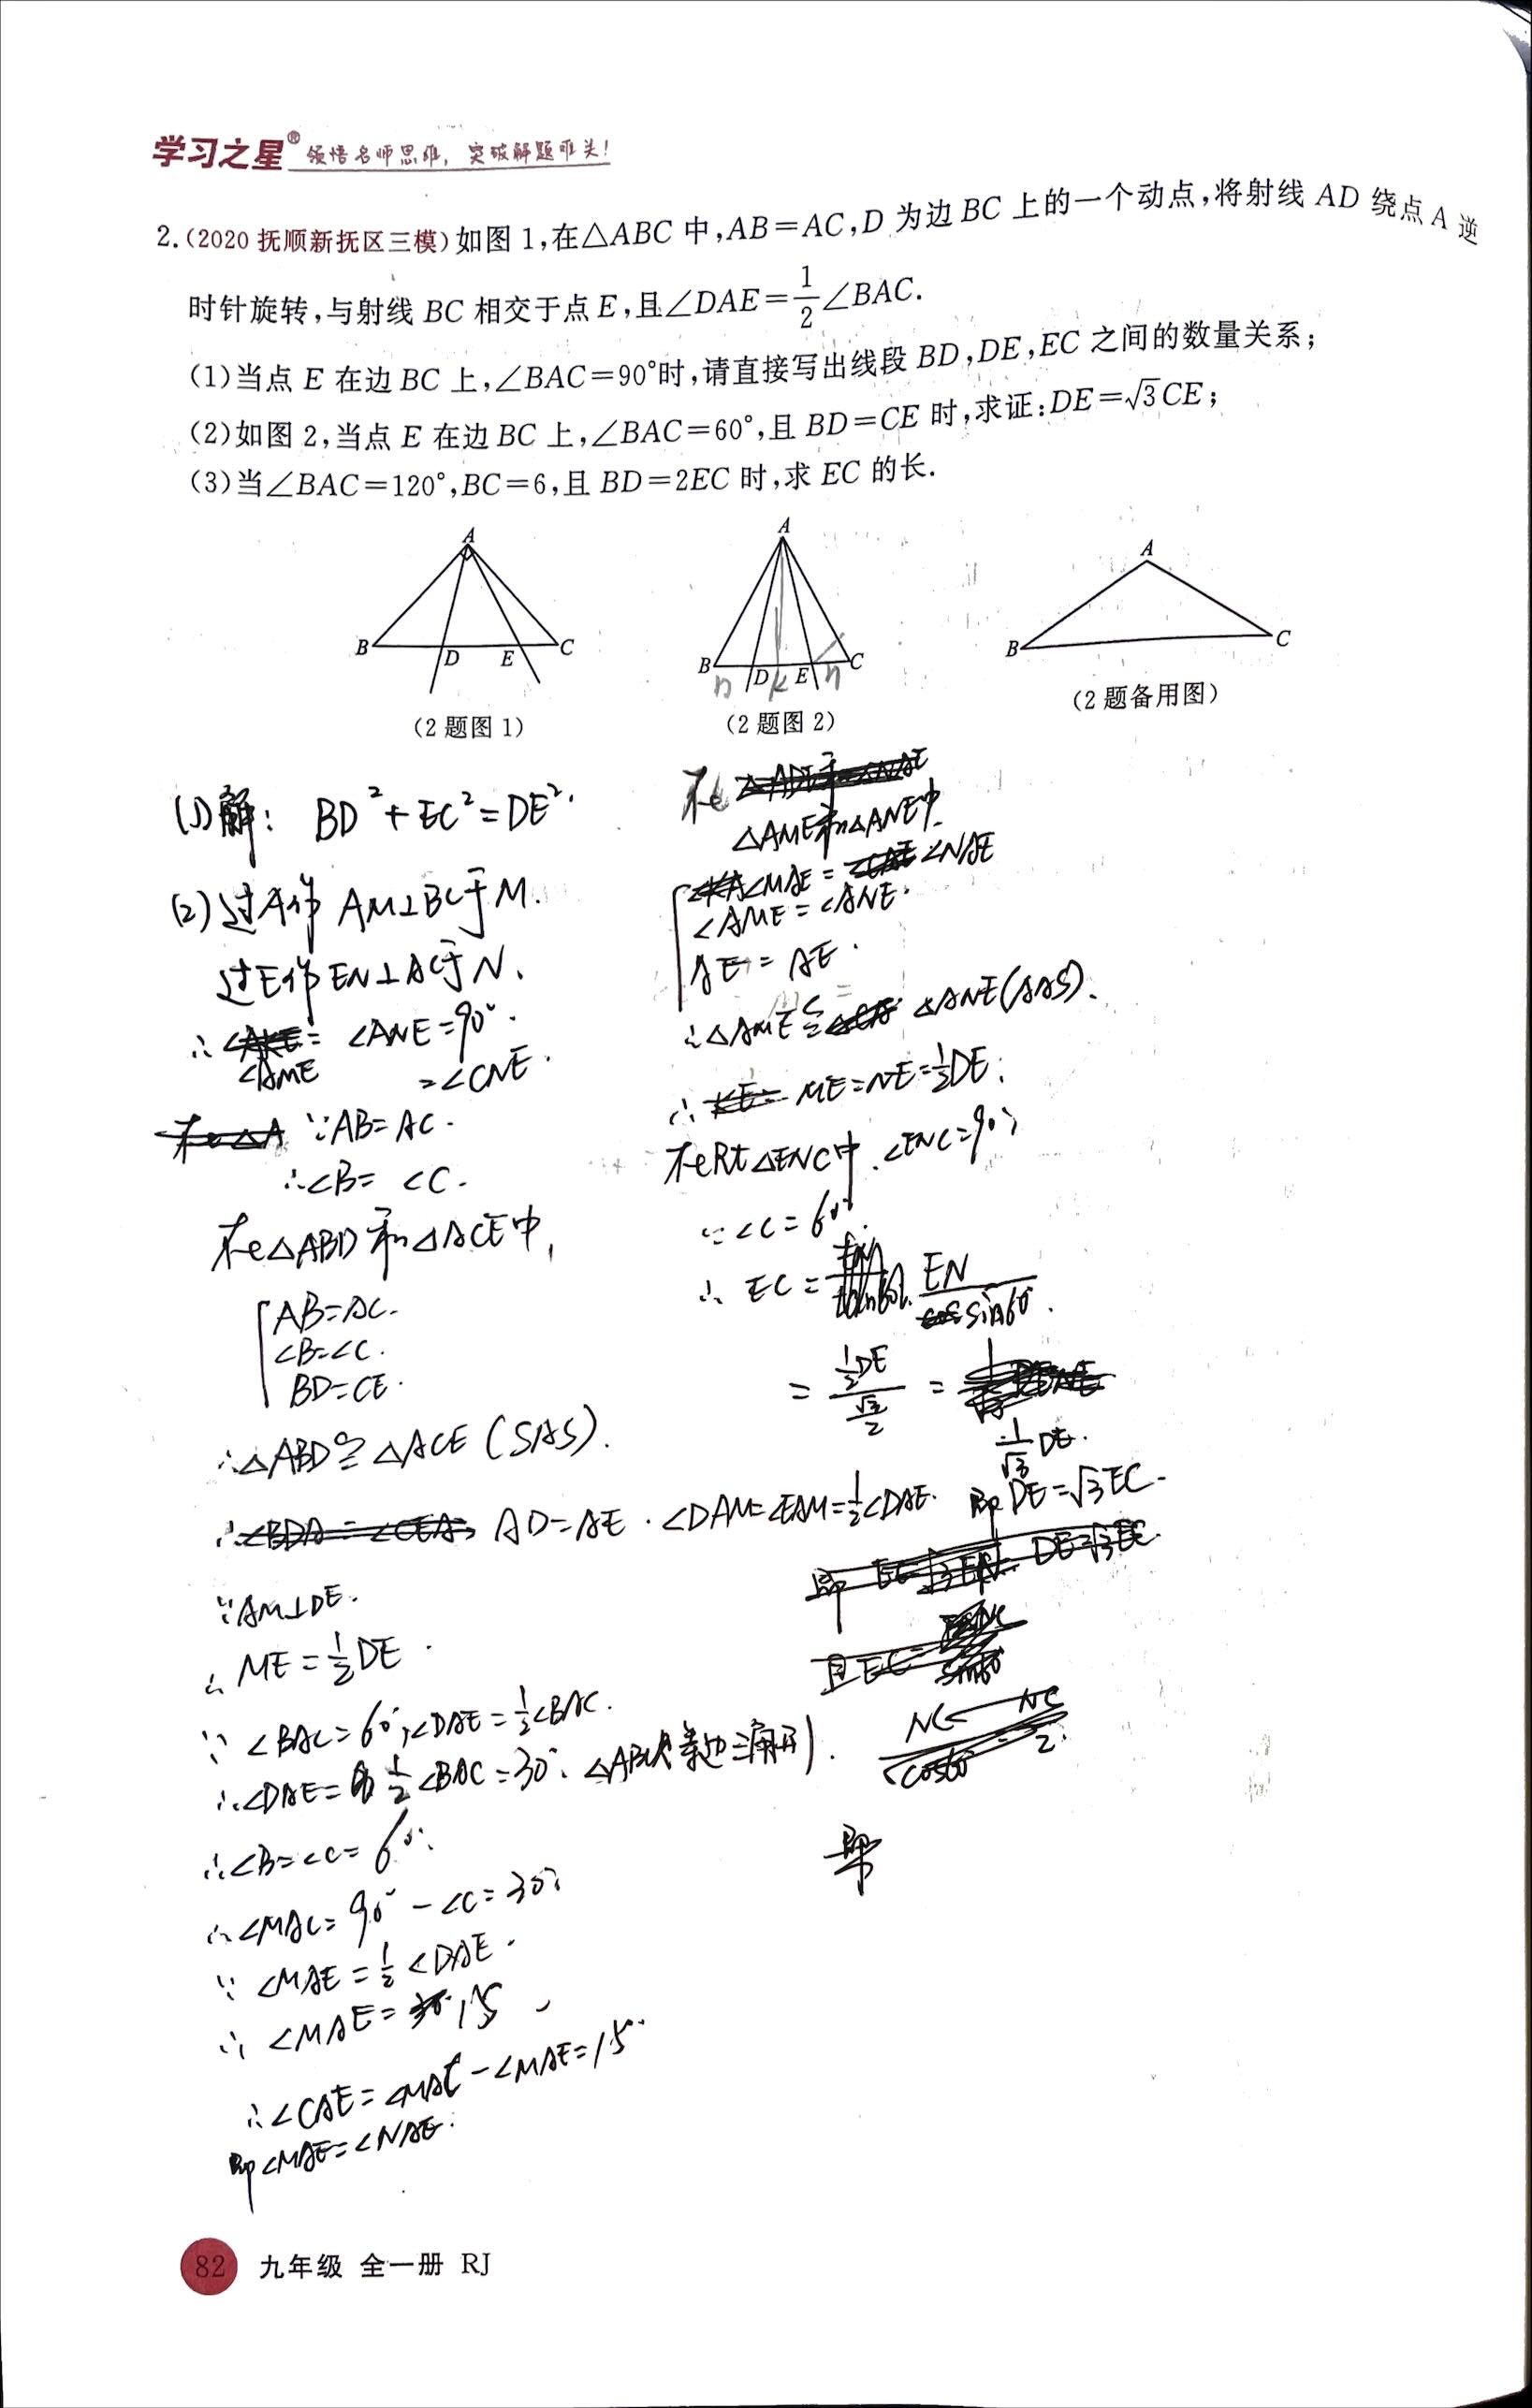 学习之星® 领悟名师思维，突破解题难关!
2.(2020 抚顺新抚区三模)如图 1,在△ABC 中,AB=AC,D 为边 BC 上的一个动点,将射线 AD 绕点 A 逆
时针旋转,与射线 BC 相交于点 E,且∠DAE=\frac{1}{2}∠BAC.
(1)当点 E 在边 BC 上,∠BAC=90°时,请直接写出线段 BD,DE,EC 之间的数量关系;
(2)如图 2,当点 E 在边 BC 上,∠BAC=60°,且 BD=CE 时,求证:DE=√3CE;
(3)当∠BAC=120°,BC=6,且 BD=2EC 时,求 EC 的长.
A
B
D
E
C
(2 题图 1)
A
B
D
E
C
n
k
n
(2 题图 2)
A
B
C
(2 题备用图)
(1)解: BD²+EC²=DE².
(2)过A作 AM⊥BC于M.
过E作EN⊥AC于N.
∴ ∠AME ∠ANE=90°.
=∠CNE.
∵AB=AC.
∴∠B=∠C.
在△ABD和△ACE中,
AB=AC.
∠B=∠C.
BD=CE.
∴△ABD≌△ACE(SAS).
∴ AD=AE.∠DAM=∠EAM=\frac{1}{2}∠DAE.
∵AM⊥DE.
∴ ME=\frac{1}{2}DE.
∵ ∠BAC=60°,∠DAE=\frac{1}{2}∠BAC.
∴∠DAE=\frac{1}{2}∠BAC=30°. △ABC为等边三角形.
∴∠B=∠C=60°.
∴∠MAC=90°-∠C=30°.
∵ ∠MAE=\frac{1}{2}∠DAE.
∴ ∠MAE=15
∴∠CAE=∠MAC-∠MAE=15°
即∠MAE=∠NAE.
在
△AME和△ANE中
∠MAE=∠NAE
∠AME=∠ANE.
AE=AE.
∴△AME≌△ANE(AAS).
∴ ME=NE=\frac{1}{2}DE.
在Rt△ENC中.∠ENC=90°
∵∠C=60°.
∴ EC=\frac{EN}{sin60°}.
=\frac{\frac{1}{2}DE}{\frac{√3}{2}}=
\frac{1}{√3}DE.
即DE=√3EC.
82 九年级 全一册 RJ